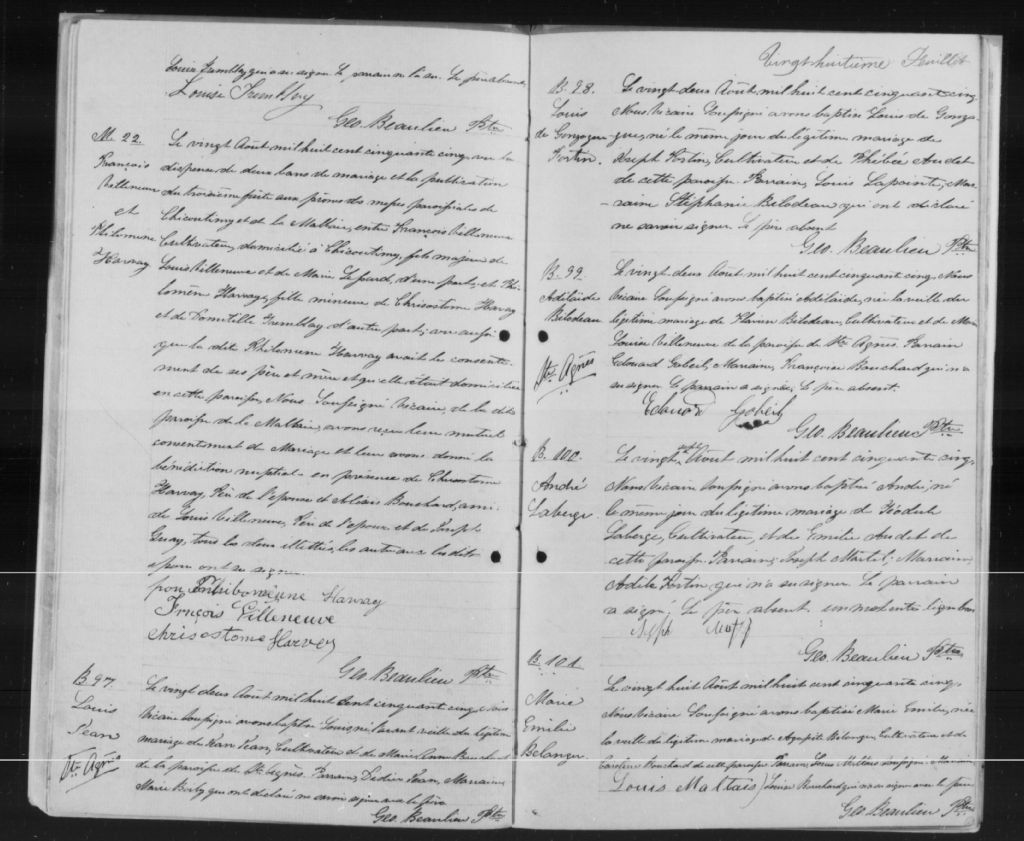 Louise Tremblay qui a su signer le parrain n'a su. Le père absent.
Louise Tremblay
Geo. Beaulieu Ptre
M. 22.
François
Villeneuve
et
Philomène
Harvay
Le vingt Août mil huit cent cinquante cinq, vu la
dispense de deux bans de mariage et la publication
du troisième faite aux prônes des messes paroissiales de
Chicoutimy et de la Malbaie, entre François Villeneuve
Cultivateur, domicilié à Chicoutimy, fils majeur de
Louis Villeneuve et de Marie Simard, d'une part, et Phi-
lomène Harvay, fille mineure de Chrisostome Harvay
et de Domitille Tremblay d'autre part; vu aussi
que la dite Philomène Harvay avait le consente-
ment de ses père et mère et qu'elle était domiciliée
en cette paroisse, Nous Soussigné Vicaire, de la dite
paroisse de la Malbaie, avons reçu leur mutuel
consentement de Mariage et leur avons donné la
bénédiction nuptiale en présence de Chrisostome
Harvay, Père de l'épouse et Bouchard, ami,
de Louis Villeneuve, Père de l'époux et de Joseph
Guay, tous les deux illettrés, les autres avec les dits
époux ont su signer.
Philomène Harvay
François Villeneuve
Chrisostome Harvey
Geo. Beaulieu Ptre
B 97.
Louis
Jean
Ste Agnès
Le vingt deux Août mil huit cent cinquante cinq, Nous
Vicaire soussigné avons baptisé Louis, né l'avant veille du légitime
mariage de Jean Jean, Cultivateur et de Marie Anne Bouchard
de la paroisse de Ste Agnès. Parrain, Didier Jean, Marraine
Marie Boily qui ont déclaré ne savoir signer avec le père
Geo. Beaulieu Ptre
Vingt huitième Feuillet
B. 98.
Louis
de Gonzague
Fortin.
Le vingt deux Août mil huit cent cinquante cinq,
Nous Vicaire Soussigné avons baptisé Louis de Gonza-
gue, né le même jour du légitime mariage de
Joseph Fortin, Cultivateur et de Phébée Audet
de cette paroisse. Parrain, Louis Lapointe, Mar-
raine Stéphanie Bilodeau qui ont déclaré
ne savoir signer. le père absent
Geo. Beaulieu Ptre
B. 99
Adélaïde
Bilodeau
Ste Agnès
Le vingt deux Août mil huit cent cinquante cinq, Nous
Vicaire Soussigné avons baptisé Adélaïde, née la veille du
légitime mariage de Flavien Bilodeau, Cultivateur et de Marie
Louise Villeneuve de la paroisse de Ste Agnès. Parrain
Edouard Gobeil, Marraine, Françoise Bouchard qui n'a
su signer le parrain a signé, le père absent.
Edouard Gobeil
Geo. Beaulieu Ptre
B. 100.
André
Laberge
Le vingt sept Août mil huit cent cinquante cinq,
Nous Vicaire Soussigné avons baptisé André, né
le même jour du légitime mariage de
Laberge, Cultivateur, et de Emilie Audet de
cette paroisse. Parrain, Joseph Martel; Marraine,
Adile Fortin, qui n'a su signer. Le parrain
a signé; le père absent un mot entre ligne bon
Geo. Beaulieu Ptre
B. 101
Marie
Emilie
Belanger
Le vingt huit Août mil huit cent cinquante cinq,
Nous Vicaire Soussigné avons baptisé Marie Emilie, née
la veille du légitime mariage de Agapit Belanger, Cultivateur et de
Caroline Bouchard de cette paroisse Parrain, Louis Maltais soussigné; Marraine
Louis Maltais Louise Bouchard qui n'a su signer avec le père
Geo. Beaulieu Ptre